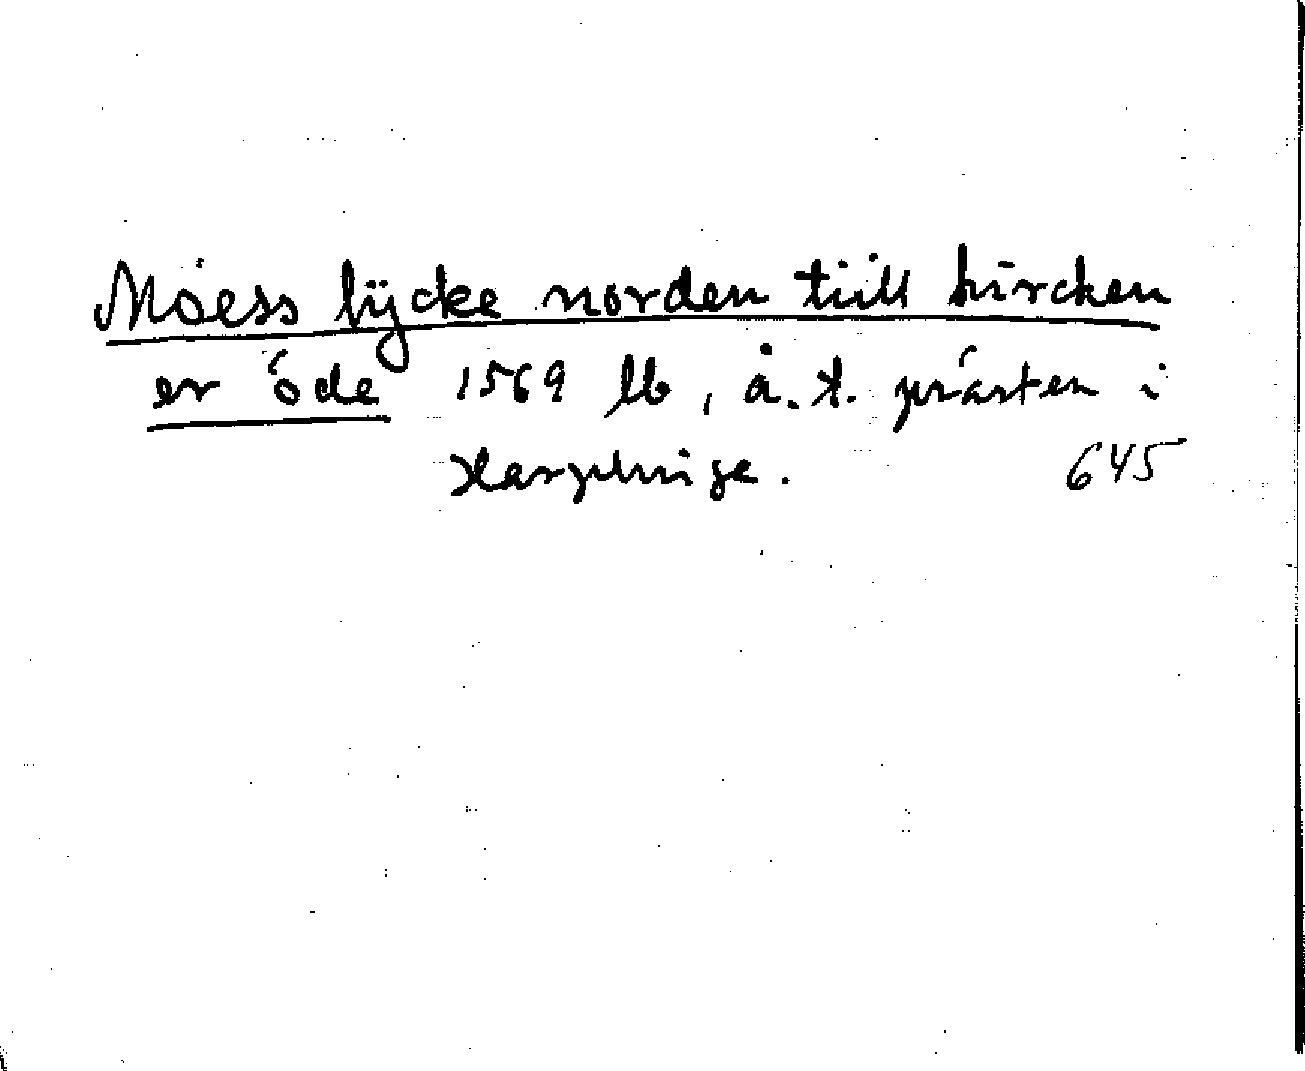 Móess lÿcke norden tiill kircken
er óde 1569 lb, å. t. prästen i
Harplinge. 645